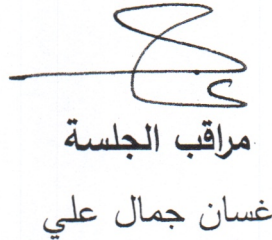 مراقب الجلسة
غسان جمال علي